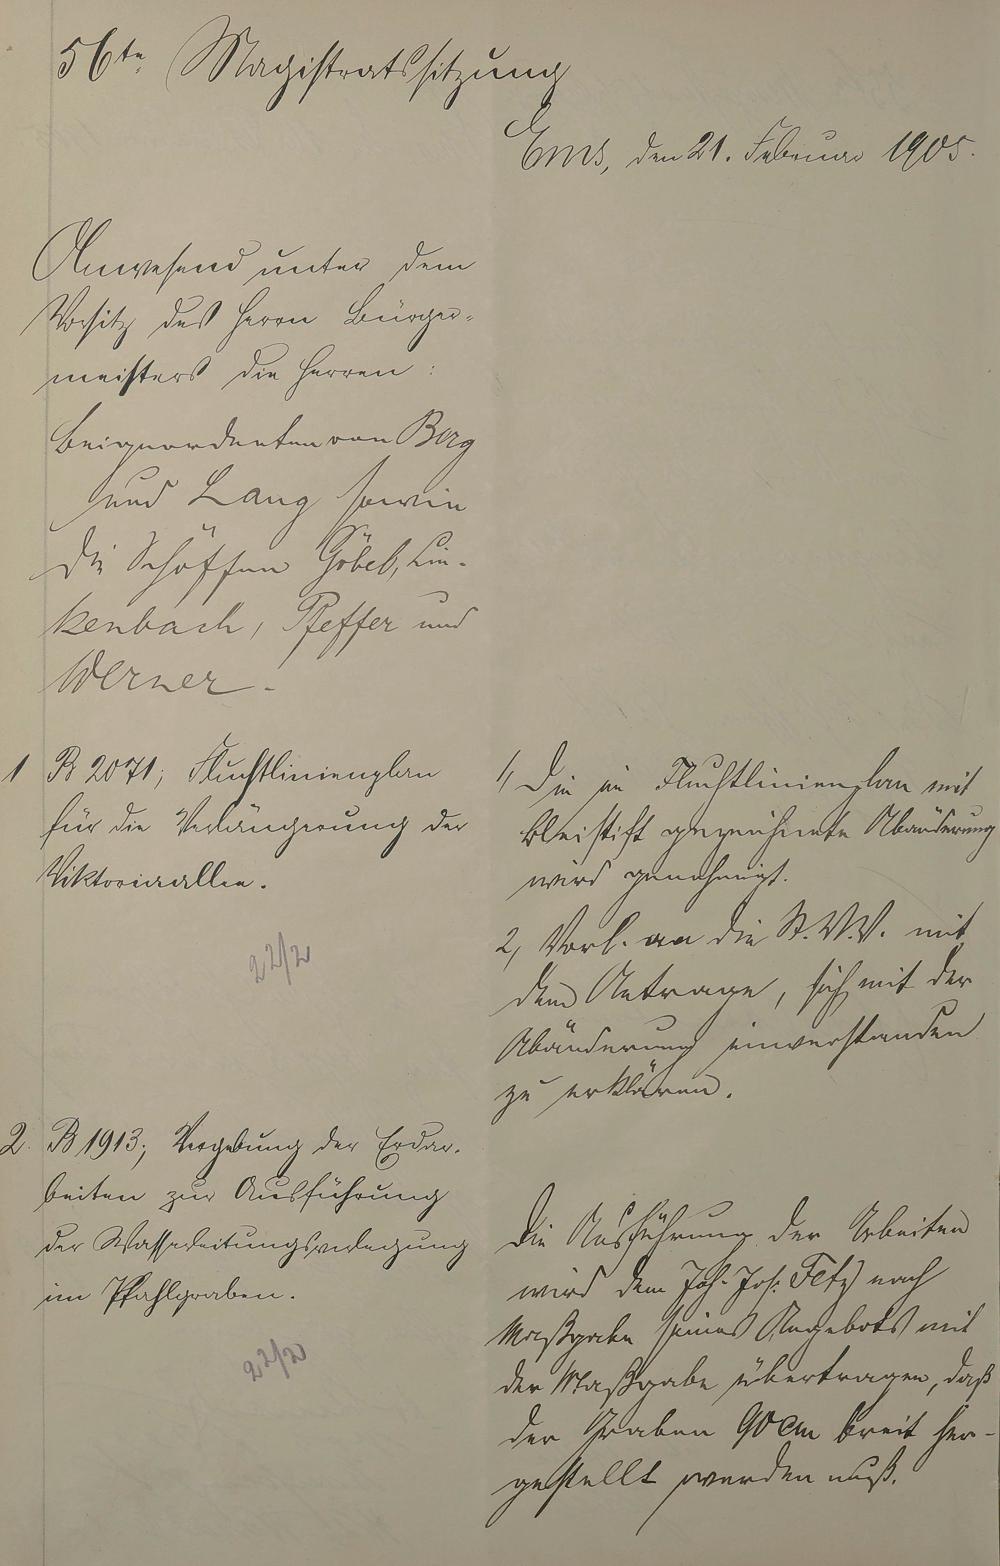 56te. Magistratssitzung
Ems, den 21. Februar 1905.
Anwesend unter dem
Vorsitz des Herrn Bürger-
meisters die Herren:
Beigeordneten von Berg
und Lang sowie
die Schöffen Göbel, Lin-
kenbach, Pfeffer und
Werner.
1 B 2071; Fluchtlinienplan
für die Verlängerung der
Viktoriaallee.
22/2
1, Die im Fluchtlinienplan mit
Bleistift gezeichnete Abänderung
wird genehmigt.
2, Vorl. an die St.V.V. mit
dem Antrage, sich mit der
Abänderung einverstanden
zu erklären.
2. B 1913; Vergebung der Erdar-
beiten zur Ausführung
der Wasserleitungsverlegung
im Pfahlgraben.
22/2
Die Ausführung der Arbeiten
wird dem Joh. Jos. Fetz nach
Maßgabe seines Angebots mit
der Maßgabe übertragen, daß
der Graben 90 cm breit her-
gestellt werden muß.